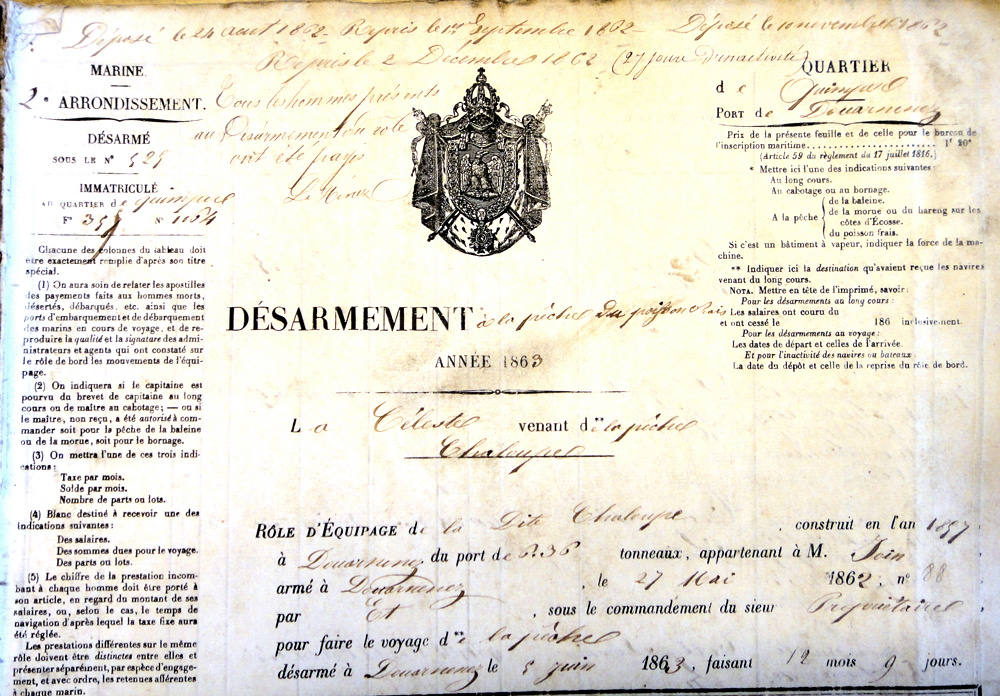 Déposé le 24 aout 1862 - Repris le 1er Septembre 1862 - Déposé le 10 novembre 1862
Repris le 2 Décembre 1862 (27 jours d'inactivité)
MARINE.
2e ARRONDISSEMENT.
DÉSARMÉ
SOUS LE N° 529
IMMATRICULÉ
AU QUARTIER de quimper
F° 358 N° 1164
Chacune des colonnes du tableau doit
être exactement remplie d'après son titre
spécial.
(1) On aura soin de relater les apostilles
des payements faits aux hommes morts,
désertés, débarqués, etc. ainsi que les
ports d'embarquement et de débarquement
des marins en cours de voyage, et de re-
produire la qualité et la signature des admi-
nistrateurs et agents qui ont constaté sur
le rôle de bord les mouvements de l'équi-
page.
(2) On indiquera si le capitaine est
pourvu du brevet de capitaine au long
cours ou de maître au cabotage; — ou si
le maître, non reçu, a été autorisé à com-
mander soit pour la pêche de la baleine
ou de la morue, soit pour le bornage.
(3) On mettra l'une de ces trois indi-
cations:
Taxe par mois.
Solde par mois.
Nombre de parts ou lots.
(4) Blanc destiné à recevoir une des
indications suivantes:
Des salaires.
Des sommes dues pour le voyage.
Des parts ou lots.
(5) Le chiffre de la prestation incom-
bant à chaque homme doit être porté à
son article, en regard du montant de ses
salaires, ou, selon le cas, le temps de
navigation d'après lequel la taxe fixe aura
été réglée.
Les prestations différentes sur le même
rôle doivent être distinctes entre elles et
présenter séparément, par espèce d'engage-
ment, et avec ordre, les retenues afférentes
à chaque marin.
Tous les hommes présents
au Désarmement du rôle
ont été payés
QUARTIER
de Quimper
PORT de Douarnenez
Prix de la présente feuille et de celle pour le bureau de
l'inscription maritime. 1f 20c
(Article 59 du règlement du 17 juillet 1816.)
* Mettre ici l'une des indications suivantes:
Au long cours.
Au cabotage ou au bornage.
A la pêche { de la baleine.
de la morue ou du hareng sur les
côtes d'Écosse.
du poisson frais.
Si c'est un bâtiment à vapeur, indiquer la force de la ma-
chine.
** Indiquer ici la destination qu'avaient reçue les navires
venant du long cours.
NOTA. Mettre en tête de l'imprimé, savoir:
Pour les désarmements au long cours:
Les salaires ont couru du
et ont cessé le 186 inclusivement.
Pour les désarmements au voyage:
Les dates de départ et celles de l'arrivée.
Et pour l'inactivité des navires ou bateaux:
La date du dépôt et celle de la reprise du rôle de bord.
DÉSARMEMENT à la pêche du poisson frais
ANNÉE 1863
La Céleste venant de la pêche
Chaloupe
RÔLE D'ÉQUIPAGE de la Dite Chaloupe, construit en l'an 1857
à Douarnenez du port de 6.36 tonneaux, appartenant à M.
armé à Douarnenez, le 27 Mai 1862, n° 88
par Et, sous le commandement du sieur Propriétaire
pour faire le voyage de la pêche
désarmé à Douarnenez le 5 juin 1863, faisant 12 mois 9 jours.